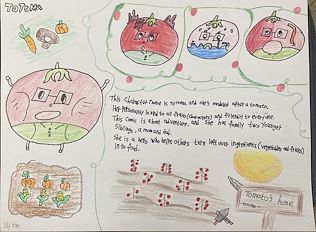 TOTOMA
This character name is Totoma, and she's modeled after a tomato.
Her personality is kind to all fruits (characters) and friendly to everyone.
This comic is about adventure, and she has family two younger
siblings, a mom and dad.
She is a hero who helps others turn left over ingredients (vegetables and fruits)
in to food.
Tomato's home